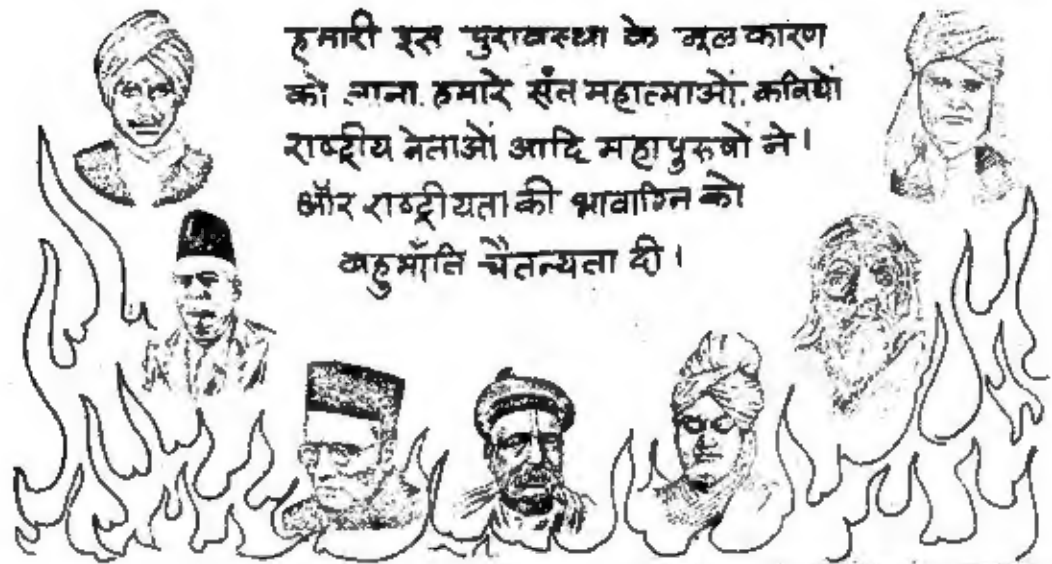 हमारी इस दुरावस्था के मूल कारण
को जाना हमारे संत महात्माओं, कवियों
राष्ट्रीय नेताओं आदि महापुरुषों ने।
और राष्ट्रीयता की भावाग्नि को
बहुभाँति चैतन्यता दी।